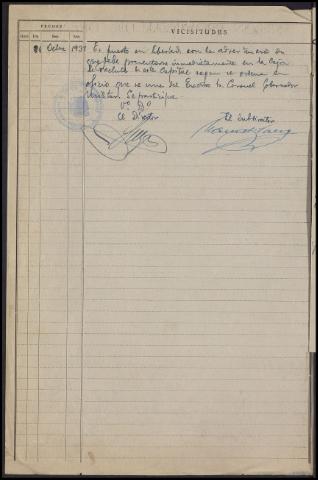 FECHAS
VICISITUDES
21 Octbre 1937 Es puesto en libertad con la advertencia de
que debe presentarse inmediatamente en la Caja
de Recluta de esta Capital segun se ordena en
oficio que se une del Excmo Sr. Coronel Gobernador
Militar. Se participa
Vº Bº
El Director
El Subdirector